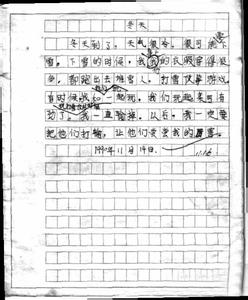 冬天
冬天到了。天气很冷。很可能下
雪。下雪的时候，我的衣服穿得很
多，都跑出去堆雪人、打雪仗等游戏
有时候
一起玩。我们玩起来可有
劲了。我一直输掉。以后，我一定要
把他们打输，让他们贵贵我的厉害。
199年11月19日。